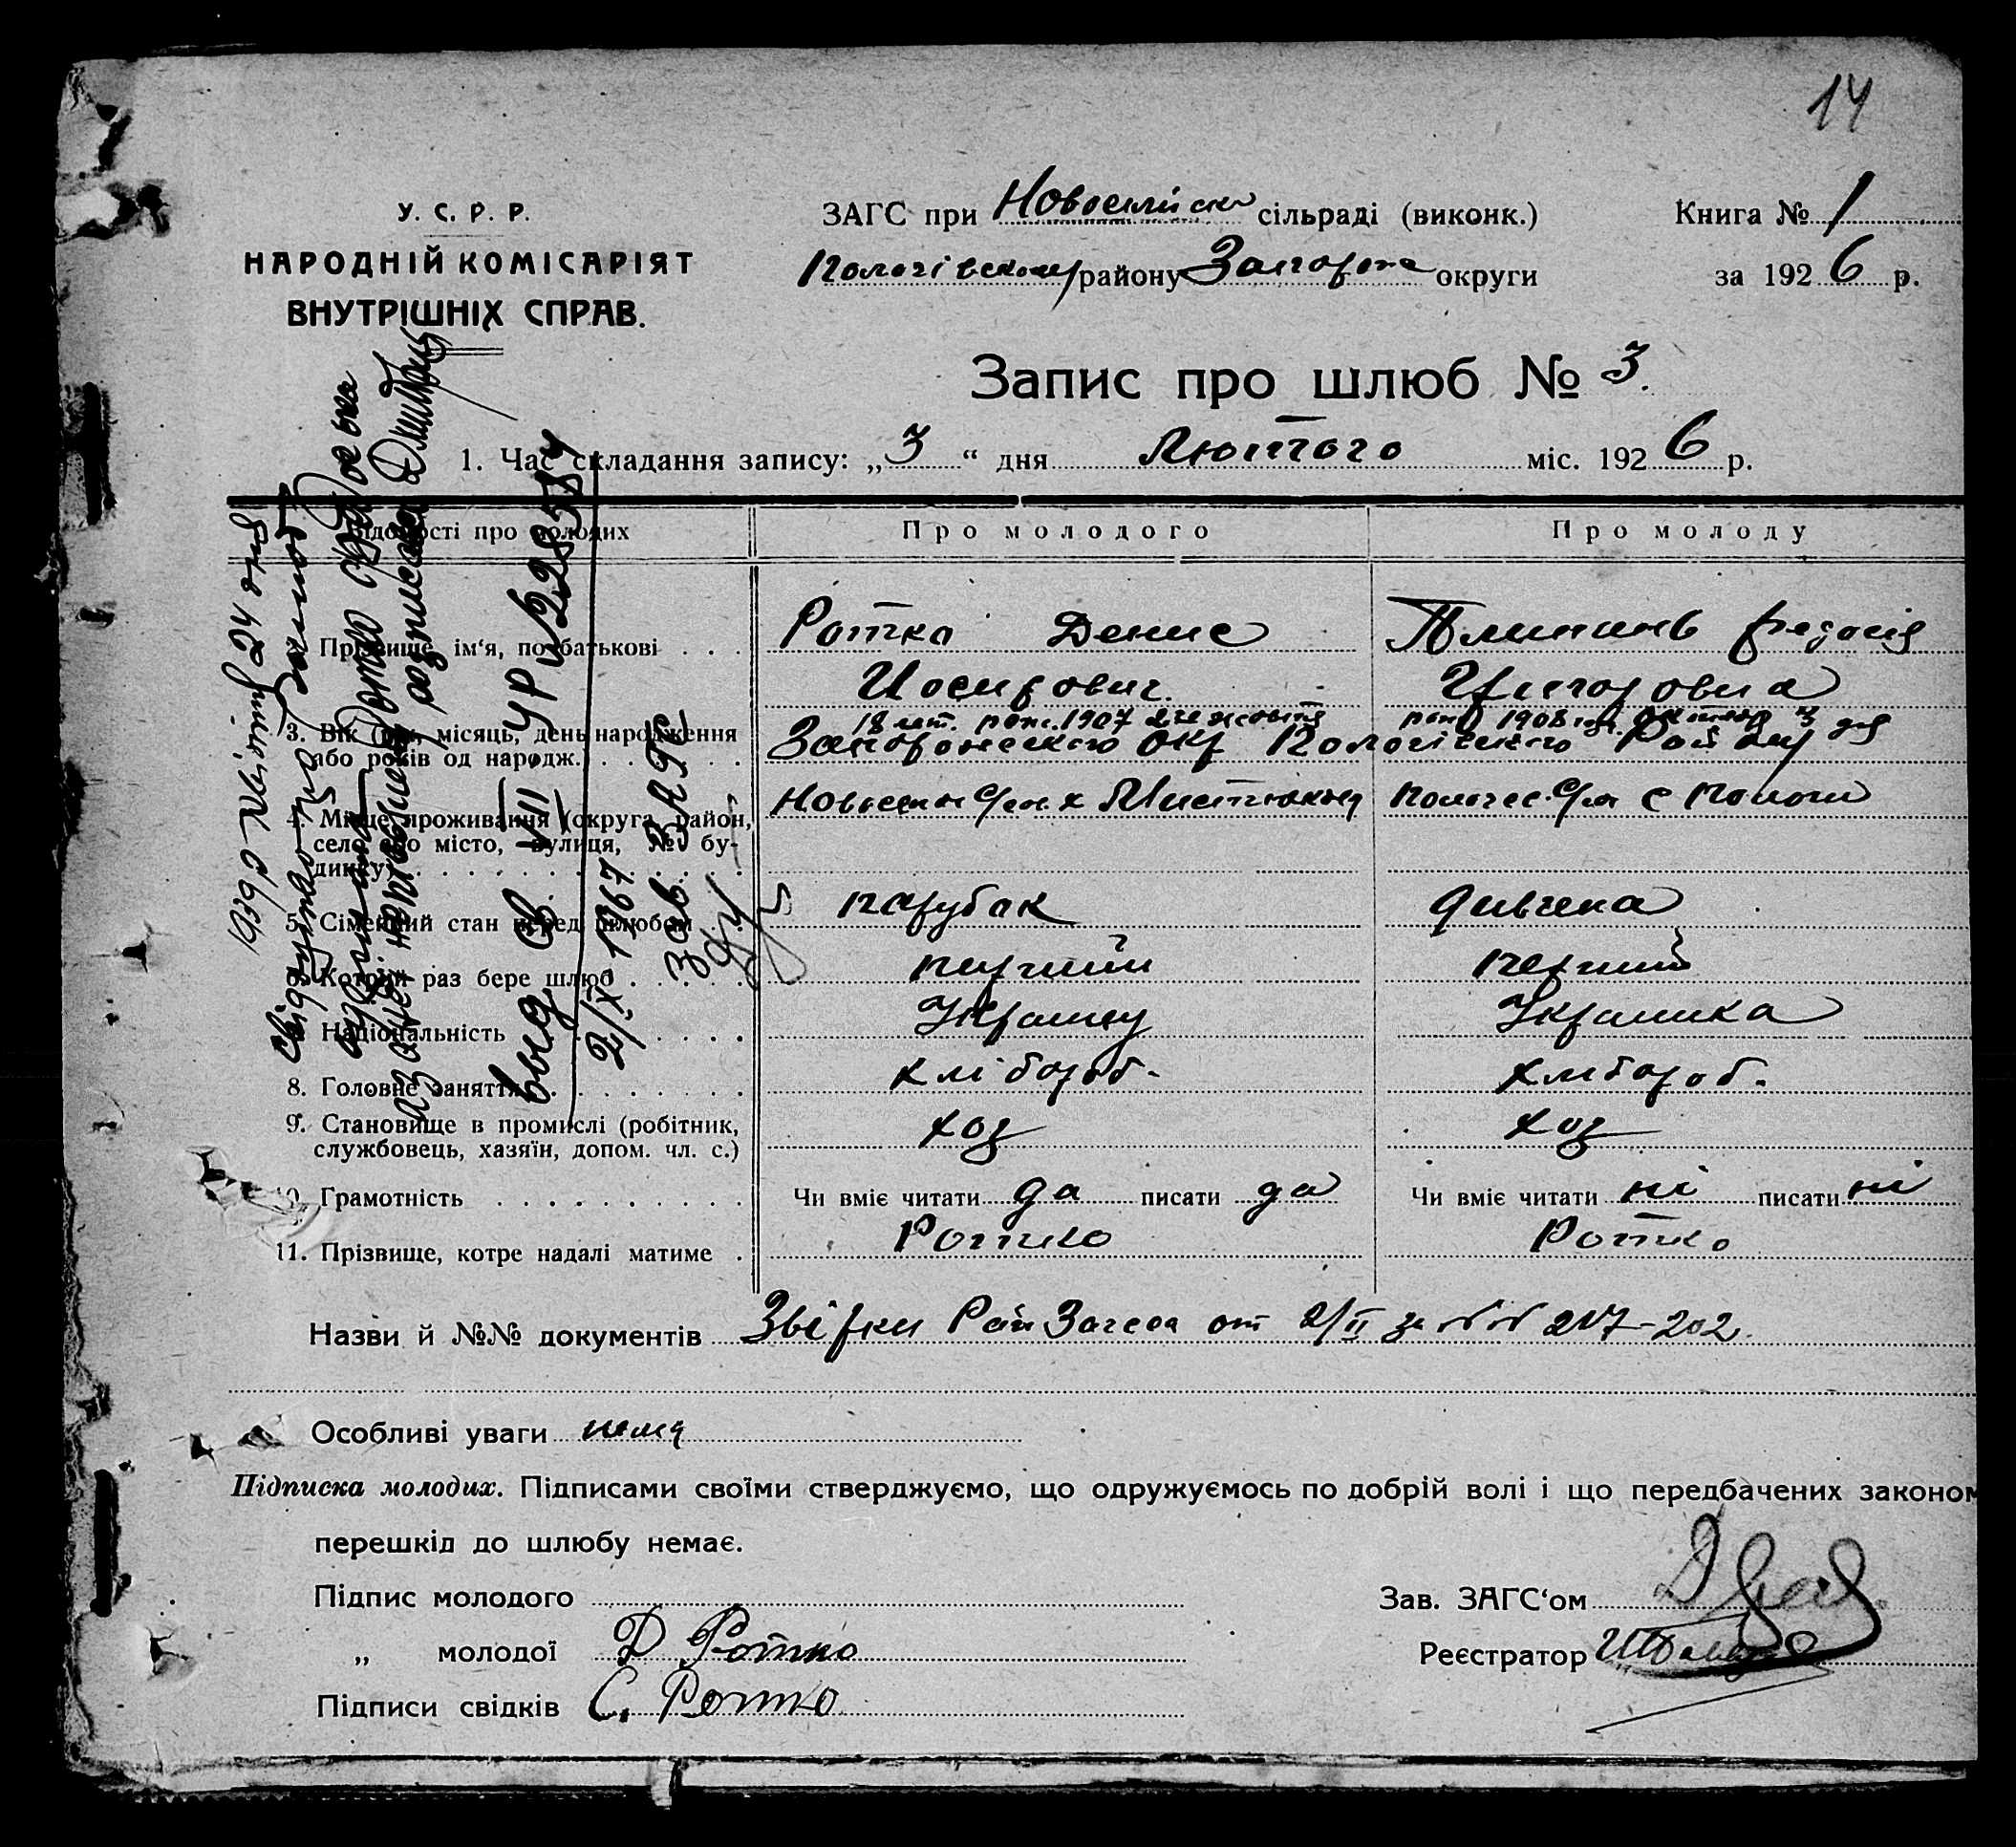 14
У. С. Р. Р.
НАРОДНІЙ КОМІСАРІЯТ
ВНУТРІШНІХ СПРАВ.
ЗАГС при сільраді (виконк.)
району округи
Книга № 1
за 1926 р.
Запис про шлюб № 3.
1. Час складання запису: „3“ дня Лютого міс. 1926 р.
Відомості про молодих
Про молодого
Про молоду
2. Прізвище, ім‘я, по батькові . . .
Ротко Денис
Иосифович
Федосія
Григоровна
3. Вік (рік, місяць, день народження
або років од народж.) . . . . . .
18 лет. 1907
1908 3 дня
Запорожского Окр Пологівского Району
4. Місце проживання (округа, район,
село або місто, вулиця, № бу-
динку) . . . . . . . . . . .
с Пологи
5. Сімейний стан перед шлюбом . . .
парубак
дивчена
6. Котрий раз бере шлюб . . . . . .
перший
перший
7. Національність . . . . . . . . .
Украинец
Украинка
8. Головне заняття . . . . . . . . .
хлібороб.
хлібороб.
9. Становище в промислі (робітник,
службовець, хазяїн, допом. чл. с.)
хоз
хоз
10. Грамотність . . . . . . . . . .
Чи вміє читати да писати да
Чи вміє читати ні писати ні
11. Прізвище, котре надалі матиме .
Ротко
Ротко
Назви й №№ документів Звірки Рай Загса от 2/II за №№ 217-202.
Особливі уваги нема
Підписка молодих. Підписами своїми стверджуємо, що одружуємось по добрій волі і що передбачених законом
перешкід до шлюбу немає.
Підпис молодого
„ молодої Д Ротко
Підписи свідків С. Ротко
Зав. ЗАГС‘ом
Реєстратор
1939 р Квітня 24 дня
выд св VII УР № 228584
2/X 1967
зав ЗАГС